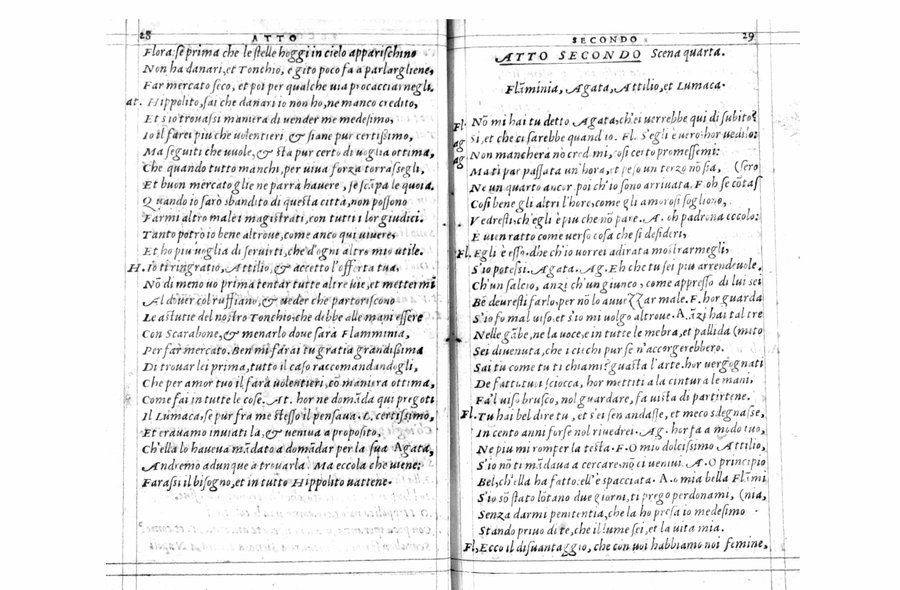 28 ATTO
Flora: se prima che le stelle hoggi in cielo apparischino
Non ha danari, et Tonchio, e gito poco fa a parlargliene,
Far mercato seco, et poi per qualche via procacciarnegli.
at. Hippolito, sai che danari io non ho, ne manco credito,
Et s'io trovassi maniera di vender me medesimo,
Io il farei piu che volentieri, & siane pur certissimo,
Ma seguiti che vuole, & sta pur certo di voglia ottima,
Che quando tutto manchi, per viva forza torrassegli,
Et buon mercato glie ne parrà havere, se scāpa le quoia.
Quando io sarò sbandito di questa città, non possono
Farmi altro male i magistrati, con tutti i lor giudici.
Tanto potrò io bene altrove, come anco qui vivere,
Et ho piu voglia di servirti, che d'ogni altro mio utile.
H. io ti ringratio, Attilio, & accetto l'offerta tua.
Nō di meno vo prima tentar tutte altre vie, et mettermi
Al dover col ruffiano, & veder che partoriscono
Le astutie del nostro Tonchio, che debbe alle mani essere
Con Scarabone, & menarlo dove sarà Flamminia,
Per far mercato. Ben mi farai tu gratia grandissima
Di trovar lei prima, tutto il caso raccomandandogli,
Che per amor tuo il farà volentieri, cō maniera ottima,
Come fai in tutte le cose. At. hor ne domāda qui pregoti
Il Lumaca, se pur fra me stesso il pensava. L. certissimo,
Et eravamo inviati la, & veniva a proposito,
Ch'ella lo haveva mādato a domādar per la sua Agata,
Andremo adunque a trovarla. Ma eccola che viene:
Farassi il bisogno, et in tutto Hippolito vattene.
SECONDO 29
ATTO SECONDO Scena quarta.
Flāminia, Agata, Attilio, et Lumaca.
Fl. Nō mi hai tu detto Agata, ch'ei verrebbe qui di subito?
ag Si, et che ci sarebbe quand'io. Fl. S'egli è vero: hor vedilo:
ag Non mancherà nō cred.mi, cosi certo promessemi:
Ma ti par passata un'hora, et peso un terzo nō sia, (sero
Ne un quarto ancor poi ch'io sono arrivata. F. oh se cōtas
Cosi bene gli altri l'hore, come gli amorosi sogliono,
Vedresti, ch'egli è piu che nō pare. A. oh padrona eccolo:
E vien ratto come verso cosa che si desideri,
Fl. Egli è esso. dhe ch'io vorrei adirata mostrarmegli,
S'io potessi. Agata. Ag. Eh che tu sei piu arrendevole.
Ch'un salcio, anzi ch'un giunco, come appresso di lui sei
Bē devresti farlo, per nō lo avvezzar male. F. hor guarda
S'io fo mal viso, et s'io mi volgo altrove. A. āzi hai tal tre
Nelle gābe, ne la voce, e in tutte le mebra, et pallida (mito
Sei divenuta, che i ciechi pur se n'accorgerebbero.
Sai tu come tu ti chiami? guasta l'arte. hor vergognati
De fatti tuoi sciocca, hor mettiti a la cintura le mani,
Fa'l viso brusco, nol guardare, fa vista di partirtene.
Fl. Tu hai bel dire tu, et s'ei sen andasse, et meco sdegnasse,
In cento anni forse nol rivedrei. Ag. hor fa a modo tuo,
Ne piu mi romper la testa. F. O mio dolcissimo Attilio,
S'io nō ti mādava a cercare, nō ci venivi. A. O principio
Bel, ch'ella ha fatto. ell'è spacciata. A. o mia bella Flāmi
S'io sō stato lōtano due giorni, ti prego perdonami, (nia,
Senza darmi penitentia, che la ho presa io medesimo
Stando privo di te, che il lume sei, et la vita mia.
Fl. Ecco il disvantaggio, che con voi habbiamo noi femine,